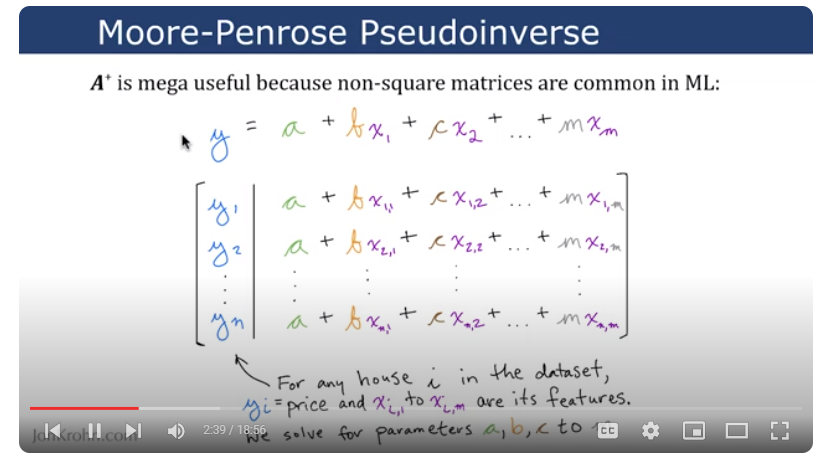 Moore-Penrose Pseudoinverse
A⁺ is mega useful because non-square matrices are common in ML:
y = a + bx₁ + cx₂ + ... + mxₘ
y₁ | a + bx₁,₁ + cx₁,₂ + ... + mx₁,ₘ
y₂ | a + bx₂,₁ + cx₂,₂ + ... + mx₂,ₘ
⋮ ⋮ ⋮ ⋮ ⋮
yₙ | a + bxₙ,₁ + cxₙ,₂ + ... + mxₙ,ₘ
For any house i in the dataset,
yᵢ = price and xᵢ,₁ to xᵢ,ₘ are its features.
We solve for parameters a, b, c to
JonKrohn.com
2:39 / 18:56
CC